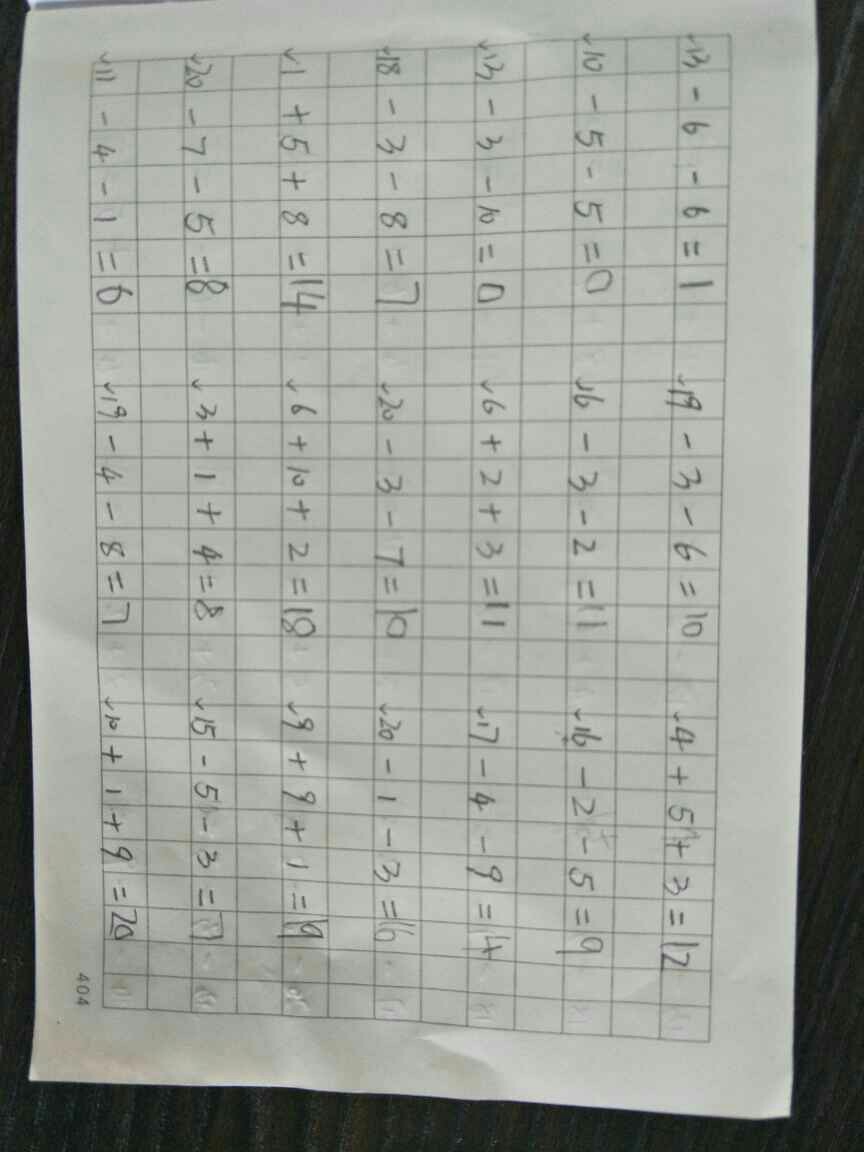 √13 - 6 - 6 = 1 √19 - 3 - 6 = 10 √4 + 5 + 3 = 12
√10 - 5 - 5 = 0 √16 - 3 - 2 = 11 √16 - 2 - 5 = 9
√13 - 3 - 10 = 0 √6 + 2 + 3 = 11 √17 - 4 - 9 = 4
√18 - 3 - 8 = 7 √20 - 3 - 7 = 10 √20 - 1 - 3 = 16
√1 + 5 + 8 = 14 √6 + 10 + 2 = 18 √9 + 9 + 1 = 19
√20 - 7 - 5 = 8 √3 + 1 + 4 = 8 √15 - 5 - 3 = 7
√11 - 4 - 1 = 6 √19 - 4 - 8 = 7 √10 + 1 + 9 = 20
404